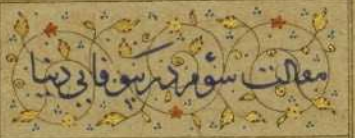 مقالت سؤم در بیوفایی دنیا